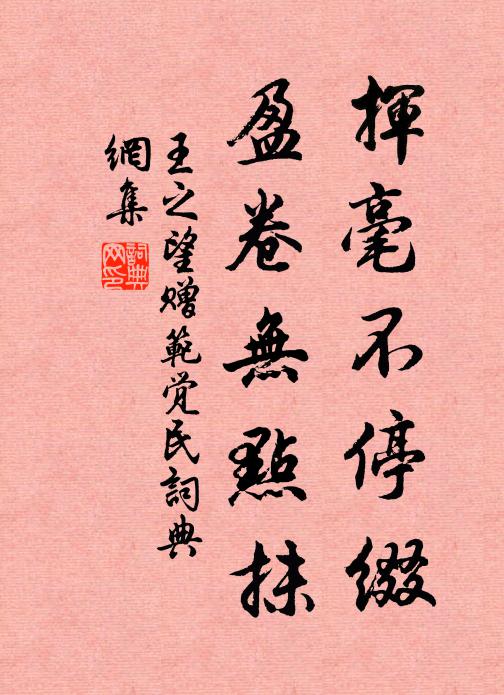 揮毫不停綴
盈卷無點抹
王之望贈範覺民詞典
網集
詞典网印